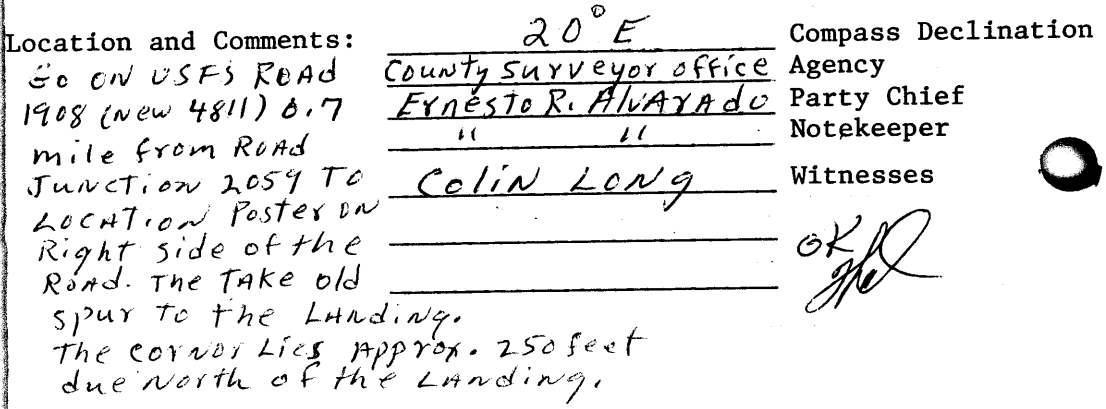 Location and Comments:
Go ON USFS ROAD
1908 (New 4811) 0.7
mile from ROAD
JUNCTION 2059 TO
LOCATION Poster ON
Right side of the
ROAD. The TAKE old
spur to the LANDING.
The CORNOR Lies Approx. 250 feet
due North of the LANDING.
20° E Compass Declination
County Surveyor office Agency
Ernesto R. AlvArAdo Party Chief
" " Notekeeper
Colin LONg Witnesses
OK